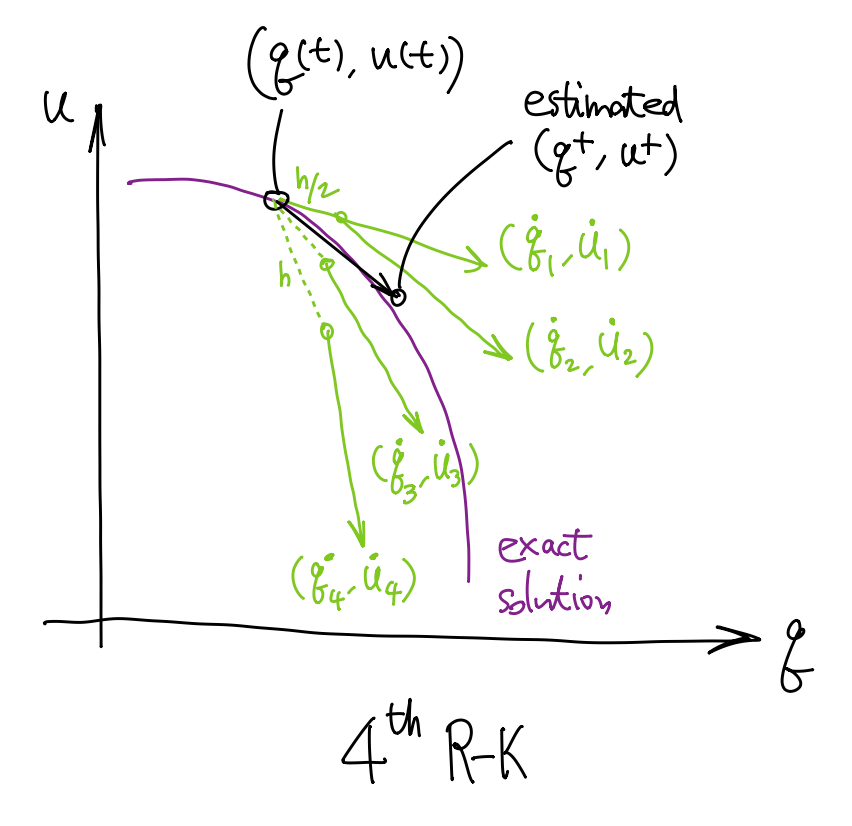 (q(t), u(t))
u
estimated
(q⁺, u⁺)
h/2
(q̇₁, u̇₁)
h
(q̇₂, u̇₂)
(q̇₃, u̇₃)
exact
solution
(q̇₄, u̇₄)
q
4ᵗʰ R-K